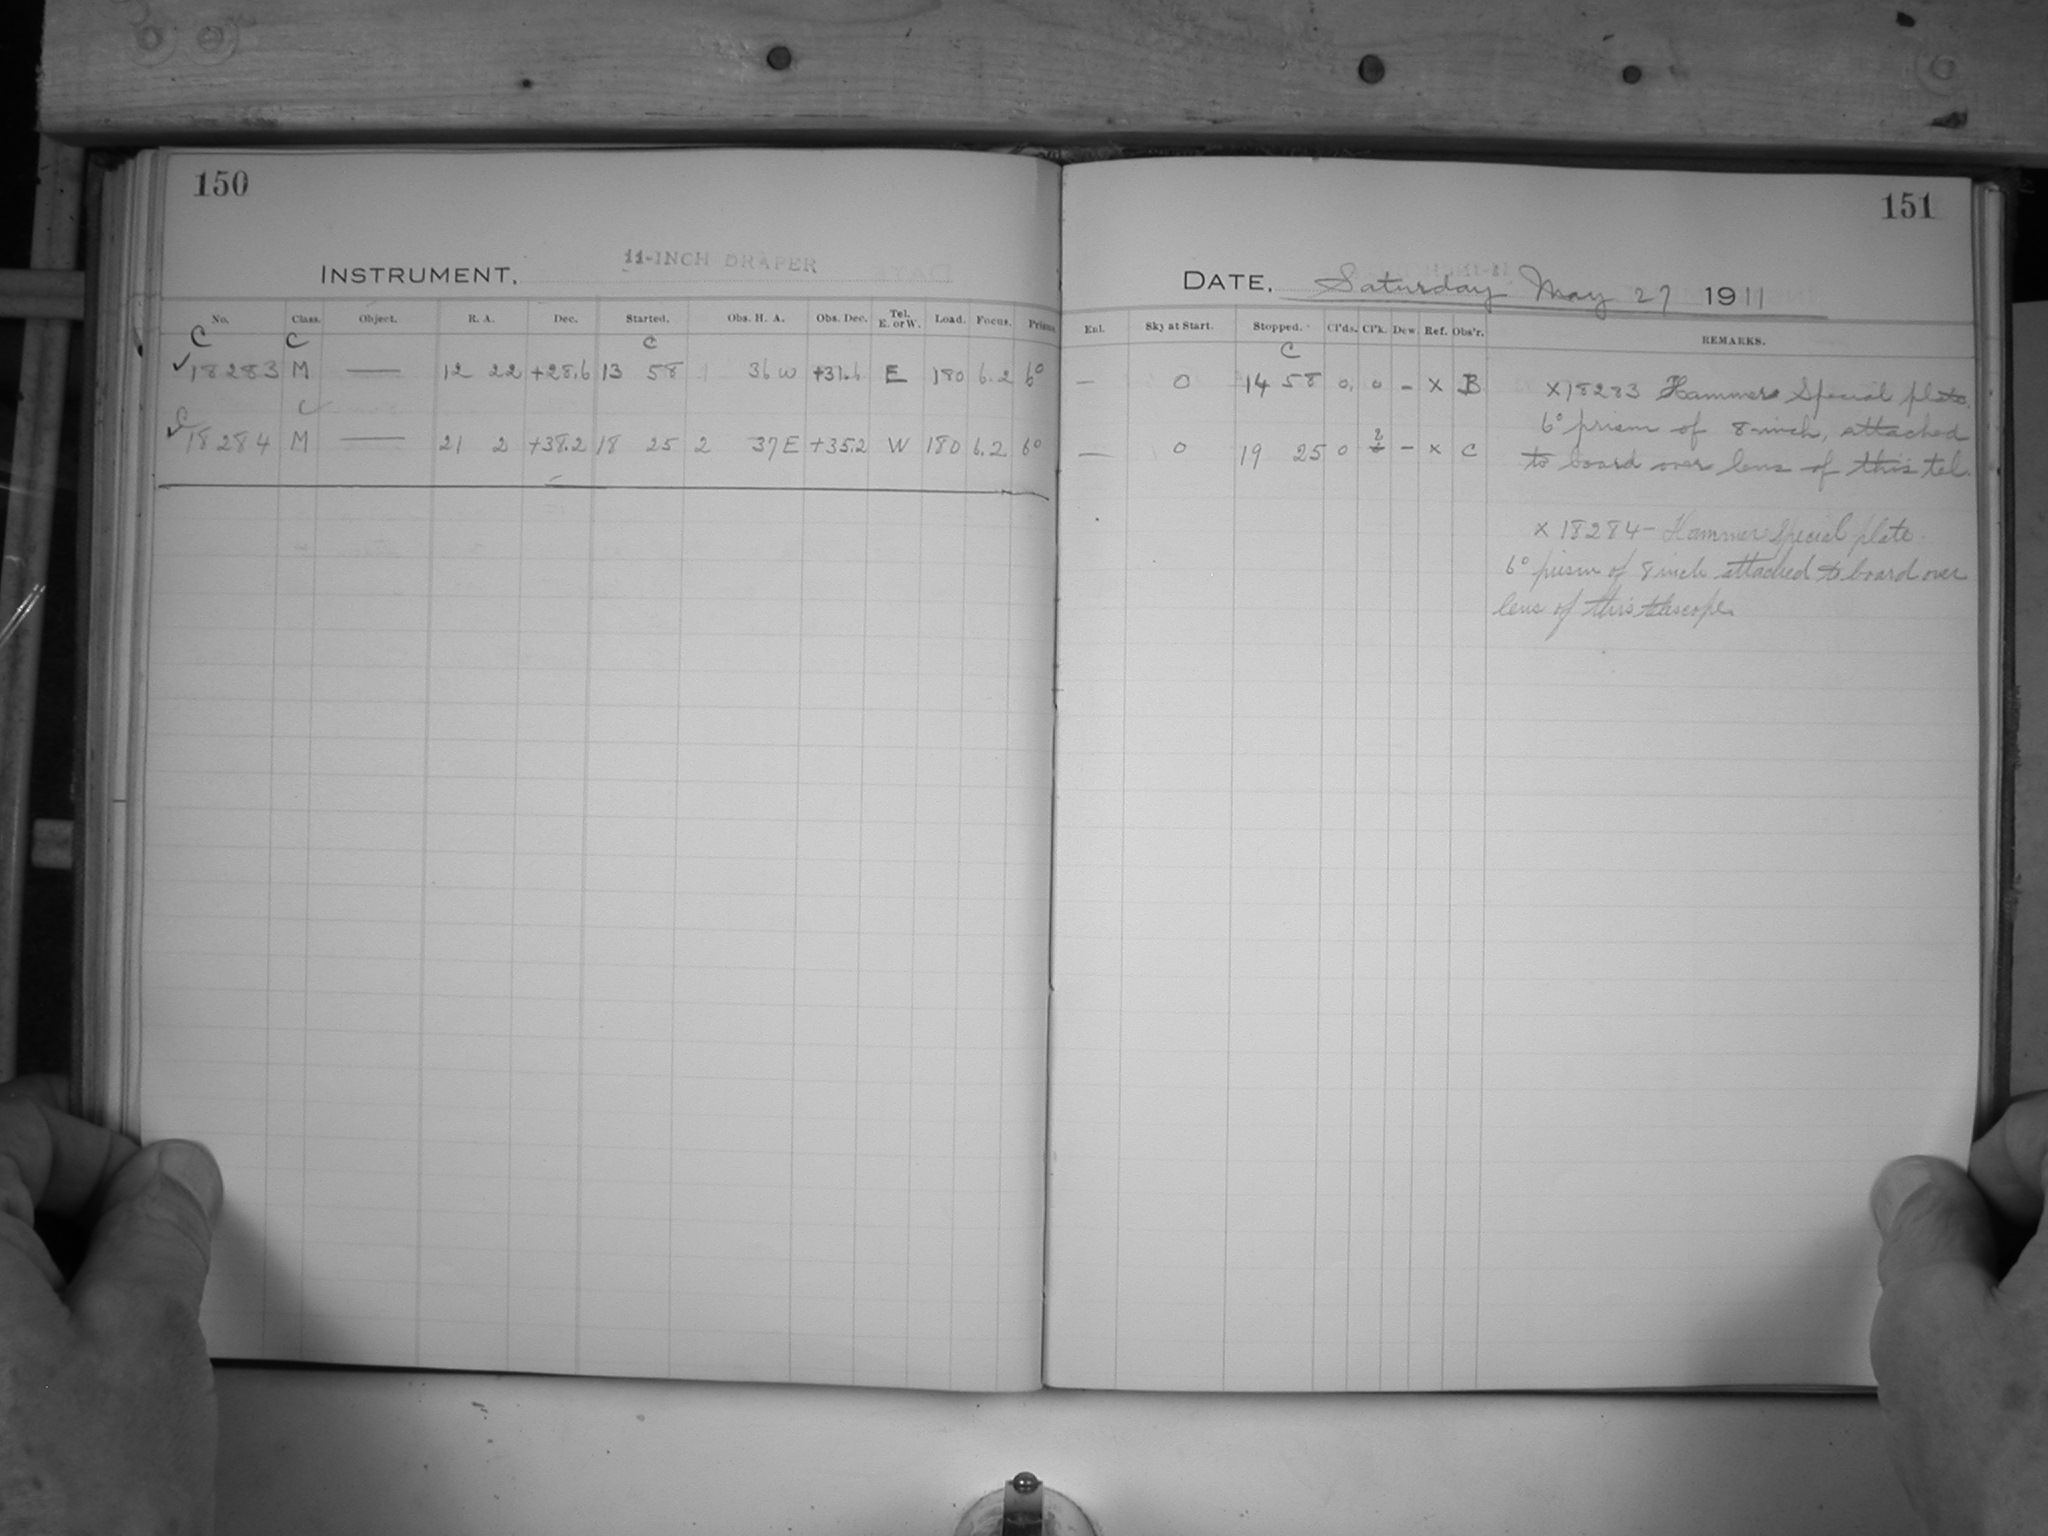 150
INSTRUMENT. 11-INCH DRAPER
No. Class. Object. R. A. Dec. Started. Obs. H. A. Obs. Dec. Tel. E. or W. Load. Focus. Prism
C C C
✓18283 M — 12 22 +28.6 13 58 1 36 W +31.6 E 180 6.2 6°
C C
✓18284 M — 21 2 +38.2 18 25 2 37 E +35.2 W 180 6.2 6°
151
DATE. Saturday May 27 1911
Exl. Sky at Start. Stopped. Cl'ds. Cl'k. Dew. Ref. Obs'r. REMARKS.
C
— 0 14 58 0 0 - X B
— 0 19 25 0 - X C
X 18283 Hammer Special plate.
6° prism of 8-inch, attached
to board over lens of this tel.
X 18284 - Hammer Special plate.
6° prism of 8 inch attached to board over
lens of this telescope.